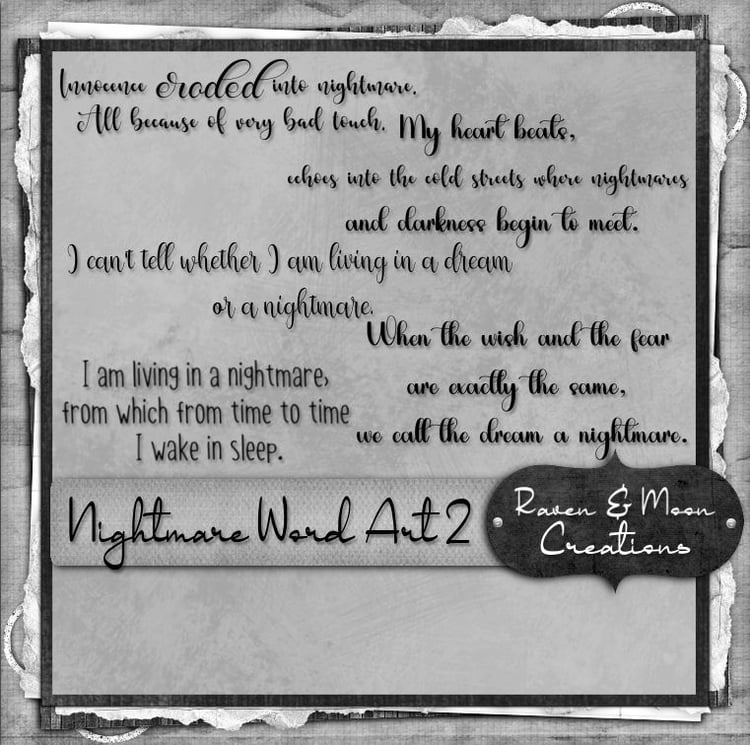 Innocence eroded into nightmare.
All because of very bad touch.
My heart beats,
echoes into the cold streets where nightmares
and darkness begin to meet.
I can't tell whether I am living in a dream
or a nightmare.
When the wish and the fear
are exactly the same,
we call the dream a nightmare.
I am living in a nightmare,
from which from time to time
I wake in sleep.
Nightmare Word Art 2
Raven & Moon
Creations